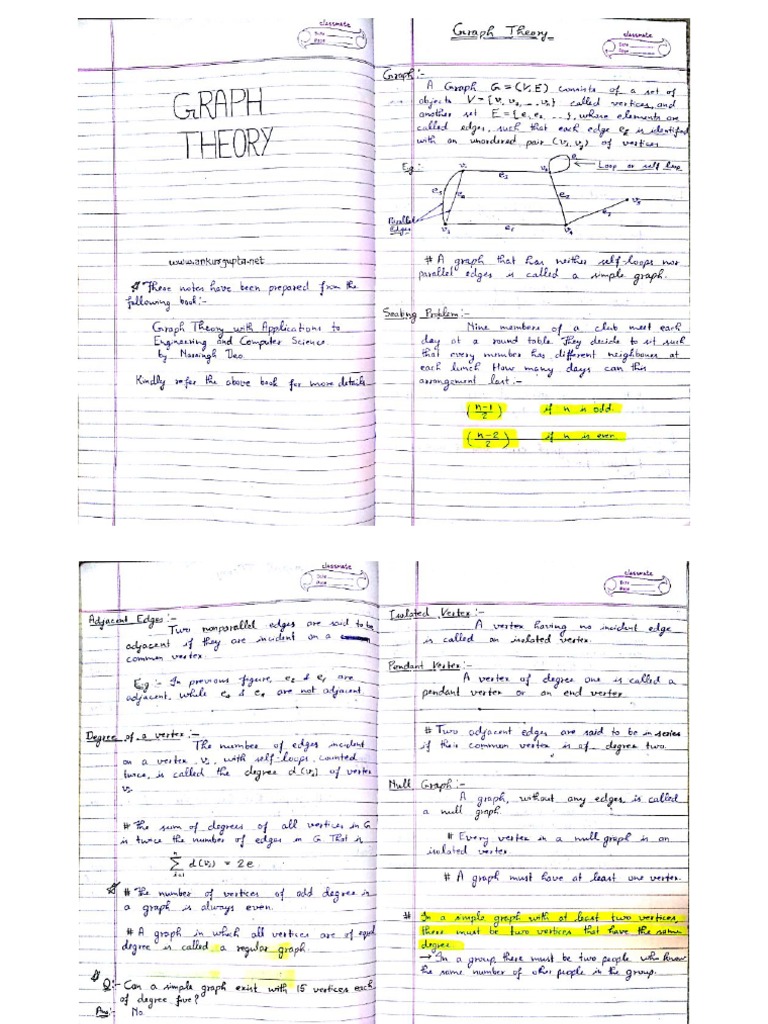 classmate
Date
Page
GRAPH
THEORY
www.ankurgupta.net
# These notes have been prepared from the
following book:-
Graph Theory with Applications to
Engineering and Computer Science.
by Narsingh Deo
Kindly refer the above book for more details.
Graph Theory
classmate
Date
Page
Graph:-
A Graph G = (V, E) consists of a set of
objects V = {v₁, v₂, ...} called vertices, and
another set E = {e₁, e₂, ...}, whose elements are
called edges, such that each edge eₖ is identified
with an unordered pair (vᵢ, vⱼ) of vertices.
Eg:-
Loop or self loop
Parallel
Edges
# A graph that has neither self-loops nor
parallel edges is called a simple graph.
Seating Problem:-
Nine members of a club meet each
day at a round table. They decide to sit such
that every member has different neighbours at
each lunch. How many days can this
arrangement last:-
(n-1/2) if n is odd.
(n-2/2) if n is even.
classmate
Date
Page
Adjacent Edges:-
Two nonparallel edges are said to be
adjacent if they are incident on a
common vertex.
Eg:- In previous figure, e₂ & e₁ are
adjacent, while & are not adjacent.
Degree of a vertex:-
The number of edges incident
on a vertex vᵢ, with self-loops counted
twice, is called the degree d(vᵢ) of vertex
vᵢ.
# The sum of degrees of all vertices in G
is twice the number of edges in G. That is
n
∑ d(vᵢ) = 2e
i=1
# The number of vertices of odd degree in
a graph is always even.
# A graph in which all vertices are of equal
degree is called a regular graph.
Q:- Can a simple graph exist with 15 vertices each
of degree five?
Ans:- No.
classmate
Date
Page
Isolated Vertex:-
A vertex having no incident edge
is called an isolated vertex.
Pendant Vertex:-
A vertex of degree one is called a
pendant vertex or an end vertex.
# Two adjacent edges are said to be in series
if their common vertex is of degree two.
Null Graph:-
A graph, without any edges is called
a null graph.
# Every vertex in a null graph is an
isolated vertex
# A graph must have at least one vertex.
# In a simple graph with at least two vertices,
there must be two vertices that have the same
degree.
→ In a group there must be two people who know
the same number of other people in the group.